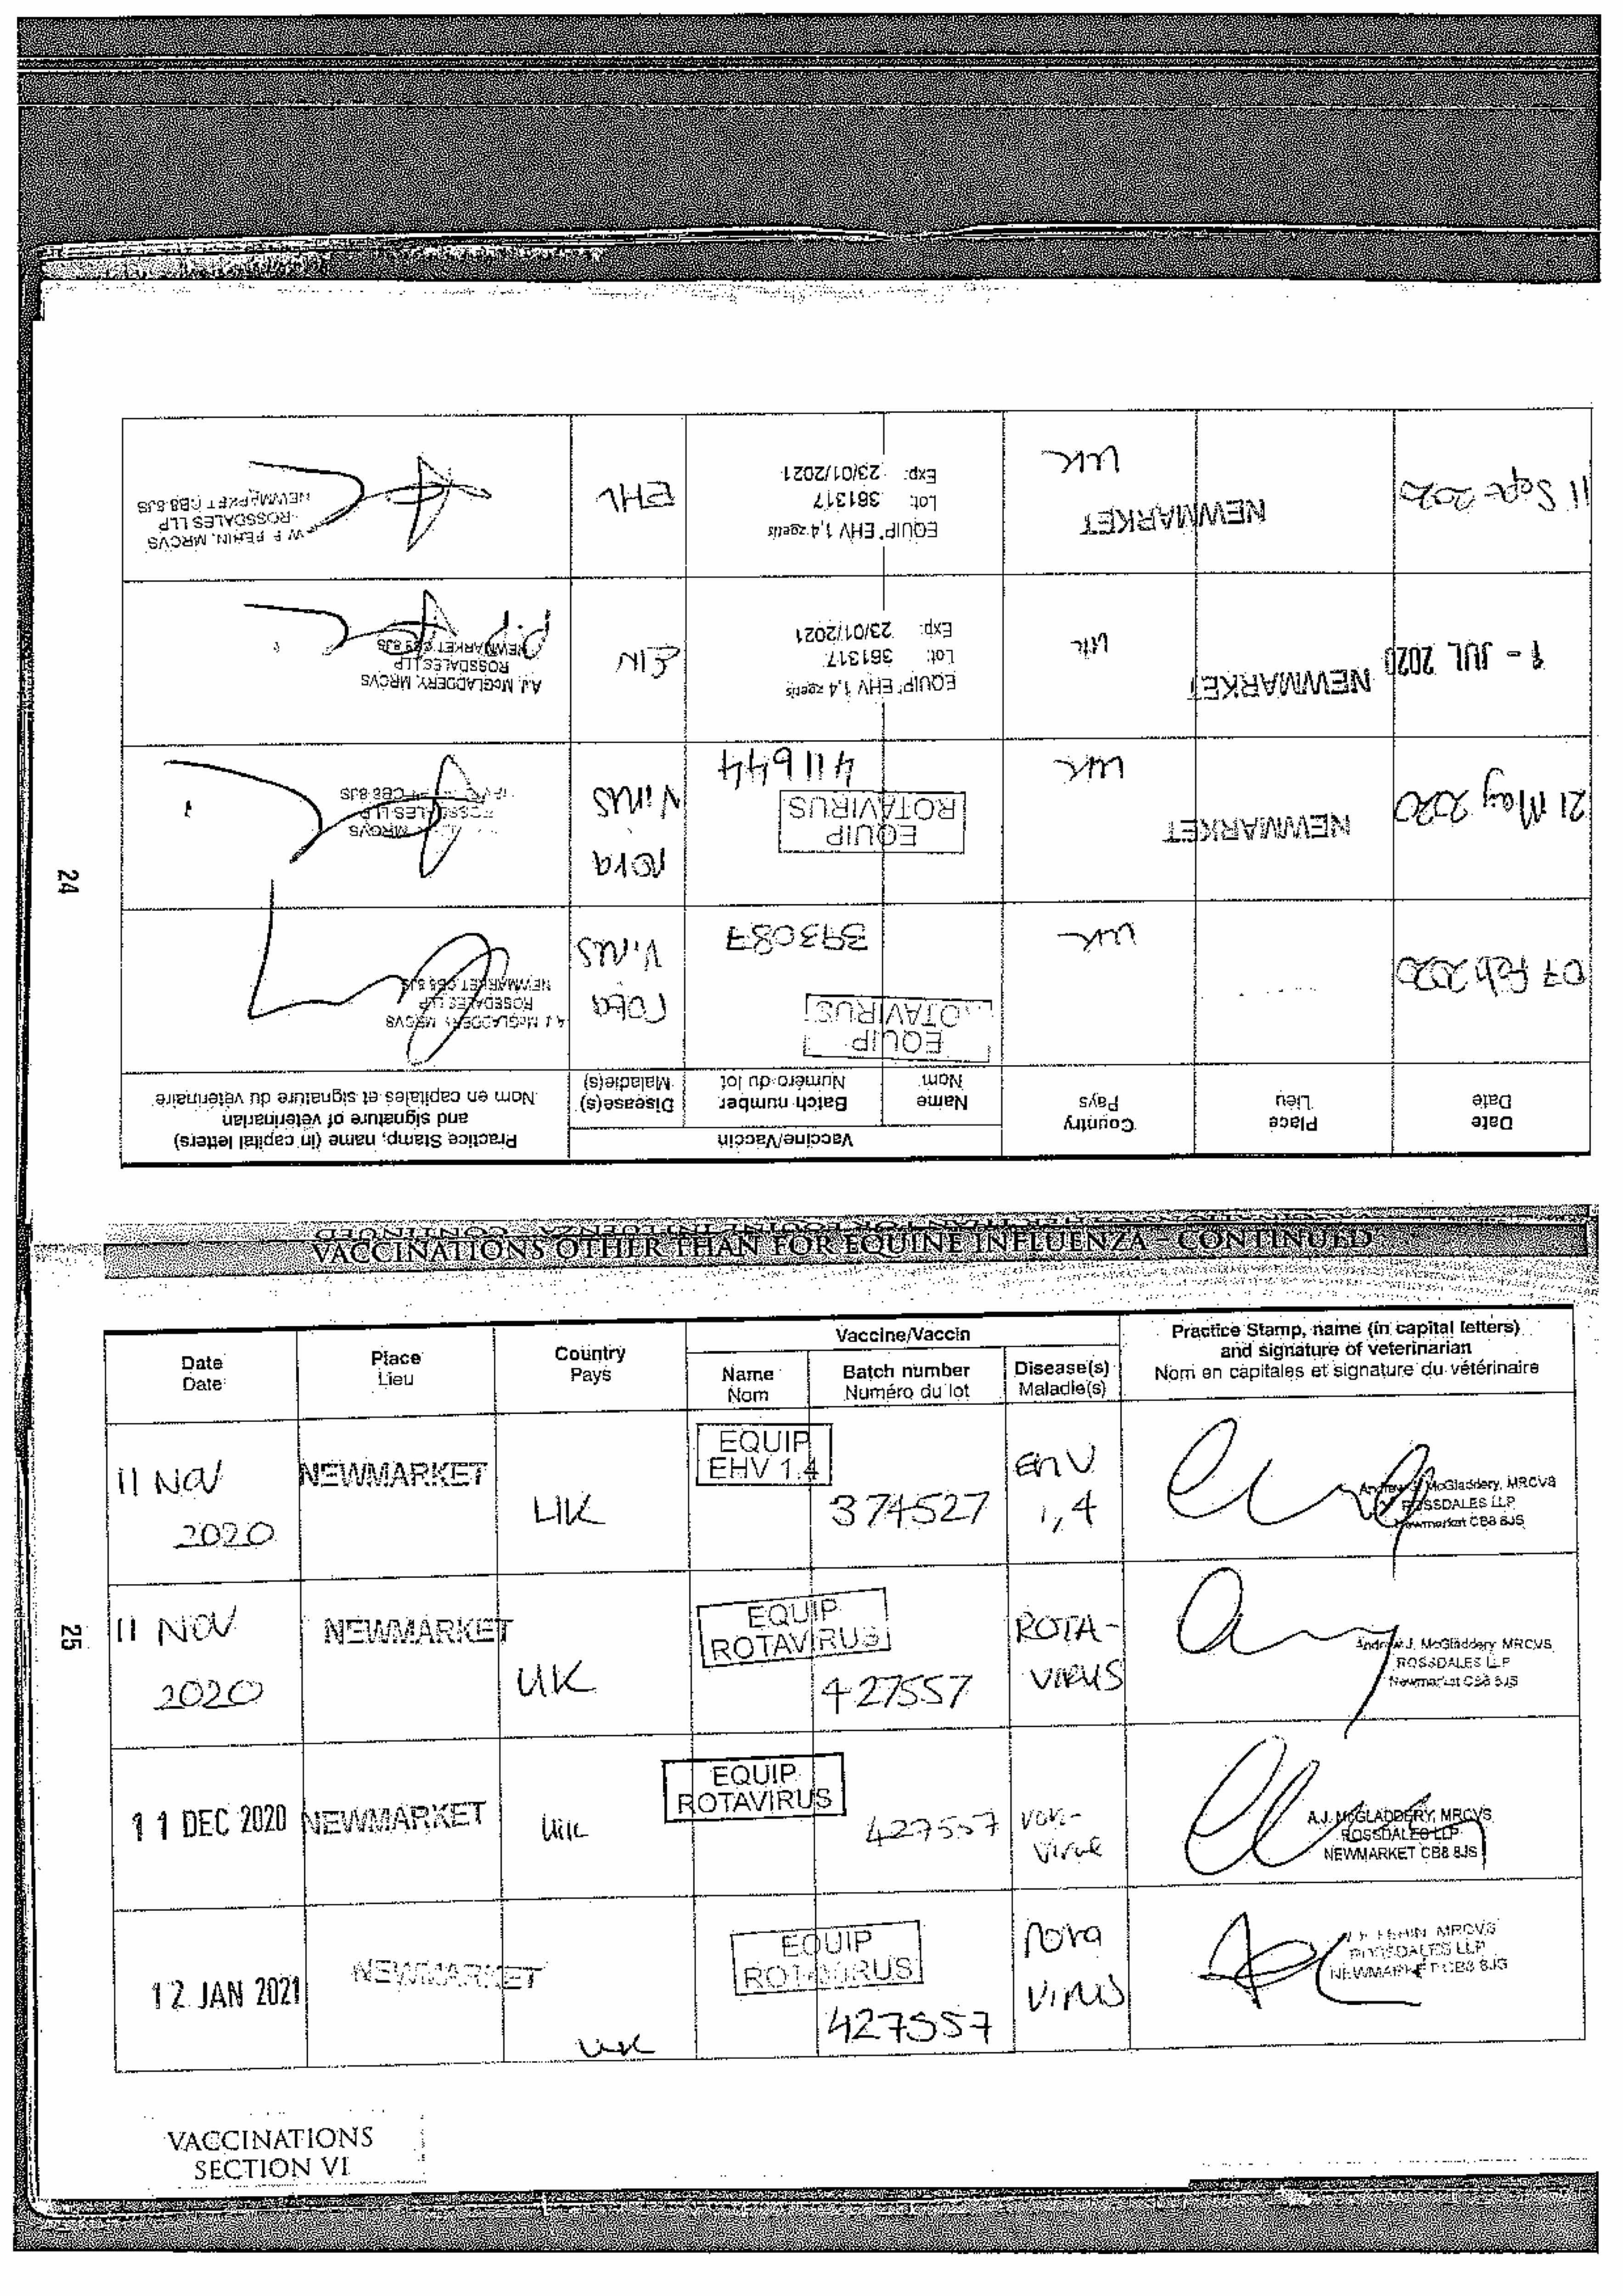 24
VACCINATIONS OTHER THAN FOR EQUINE INFLUENZA - CONTINUED
Date
Date
Place
Lieu
Country
Pays
Vaccine/Vaccin
Name
Nom
Batch number
Numéro du lot
Disease(s)
Maladie(s)
Practice Stamp, name (in capital letters)
and signature of veterinarian
Nom en capitales et signature du vétérinaire
07 Feb 2020
UK
EQUIP
ROTAVIRUS
393087
rota
Virus
A J McGLADDERY MRCVS
ROSSDALES LLP
NEWMARKET CB8 8JS
21 May 2020
NEWMARKET
UK
EQUIP
ROTAVIRUS
411644
rota
Virus
MRCVS
ROSSDALES LLP
CB8 8JS
1 - JUL 2020
NEWMARKET
UK
EQUIP EHV 1,4 zoetis
Lot: 361317
Exp: 23/01/2021
PP
A.J. McGLADDERY, MRCVS
ROSSDALES LLP
NEWMARKET CB8 8JS
11 Sept 2020
NEWMARKET
UK
EQUIP EHV 1,4 zoetis
Lot: 361317
Exp: 23/01/2021
EHV
PERIN, MRCVS
ROSSDALES LLP
NEWMARKET CB8 8JS
VACCINATIONS OTHER THAN FOR EQUINE INFLUENZA - CONTINUED
25
Date
Date
Place
Lieu
Country
Pays
Vaccine/Vaccin
Name
Nom
Batch number
Numéro du lot
Disease(s)
Maladie(s)
Practice Stamp, name (in capital letters)
and signature of veterinarian
Nom en capitales et signature du vétérinaire
11 NOV
2020
NEWMARKET
UK
EQUIP
EHV 1.4
374527
EHV
1,4
Andrew J McGladdery, MRCVS
ROSSDALES LLP
Newmarket CB8 8JS
11 NOV
2020
NEWMARKET
UK
EQUIP
ROTAVIRUS
427557
ROTA-
VIRUS
Andrew J. McGladdery MRCVS
ROSSDALES LLP
Newmarket CB8 8JS
11 DEC 2020
NEWMARKET
UK
EQUIP
ROTAVIRUS
427557
A.J. McGLADDERY, MRCVS
ROSSDALES LLP
NEWMARKET CB8 8JS
12 JAN 2021
NEWMARKET
UK
EQUIP
ROTAVIRUS
427557
rota
Virus
PERIN MRCVS
ROSSDALES LLP
NEWMARKET CB8 8JS
VACCINATIONS
SECTION VI